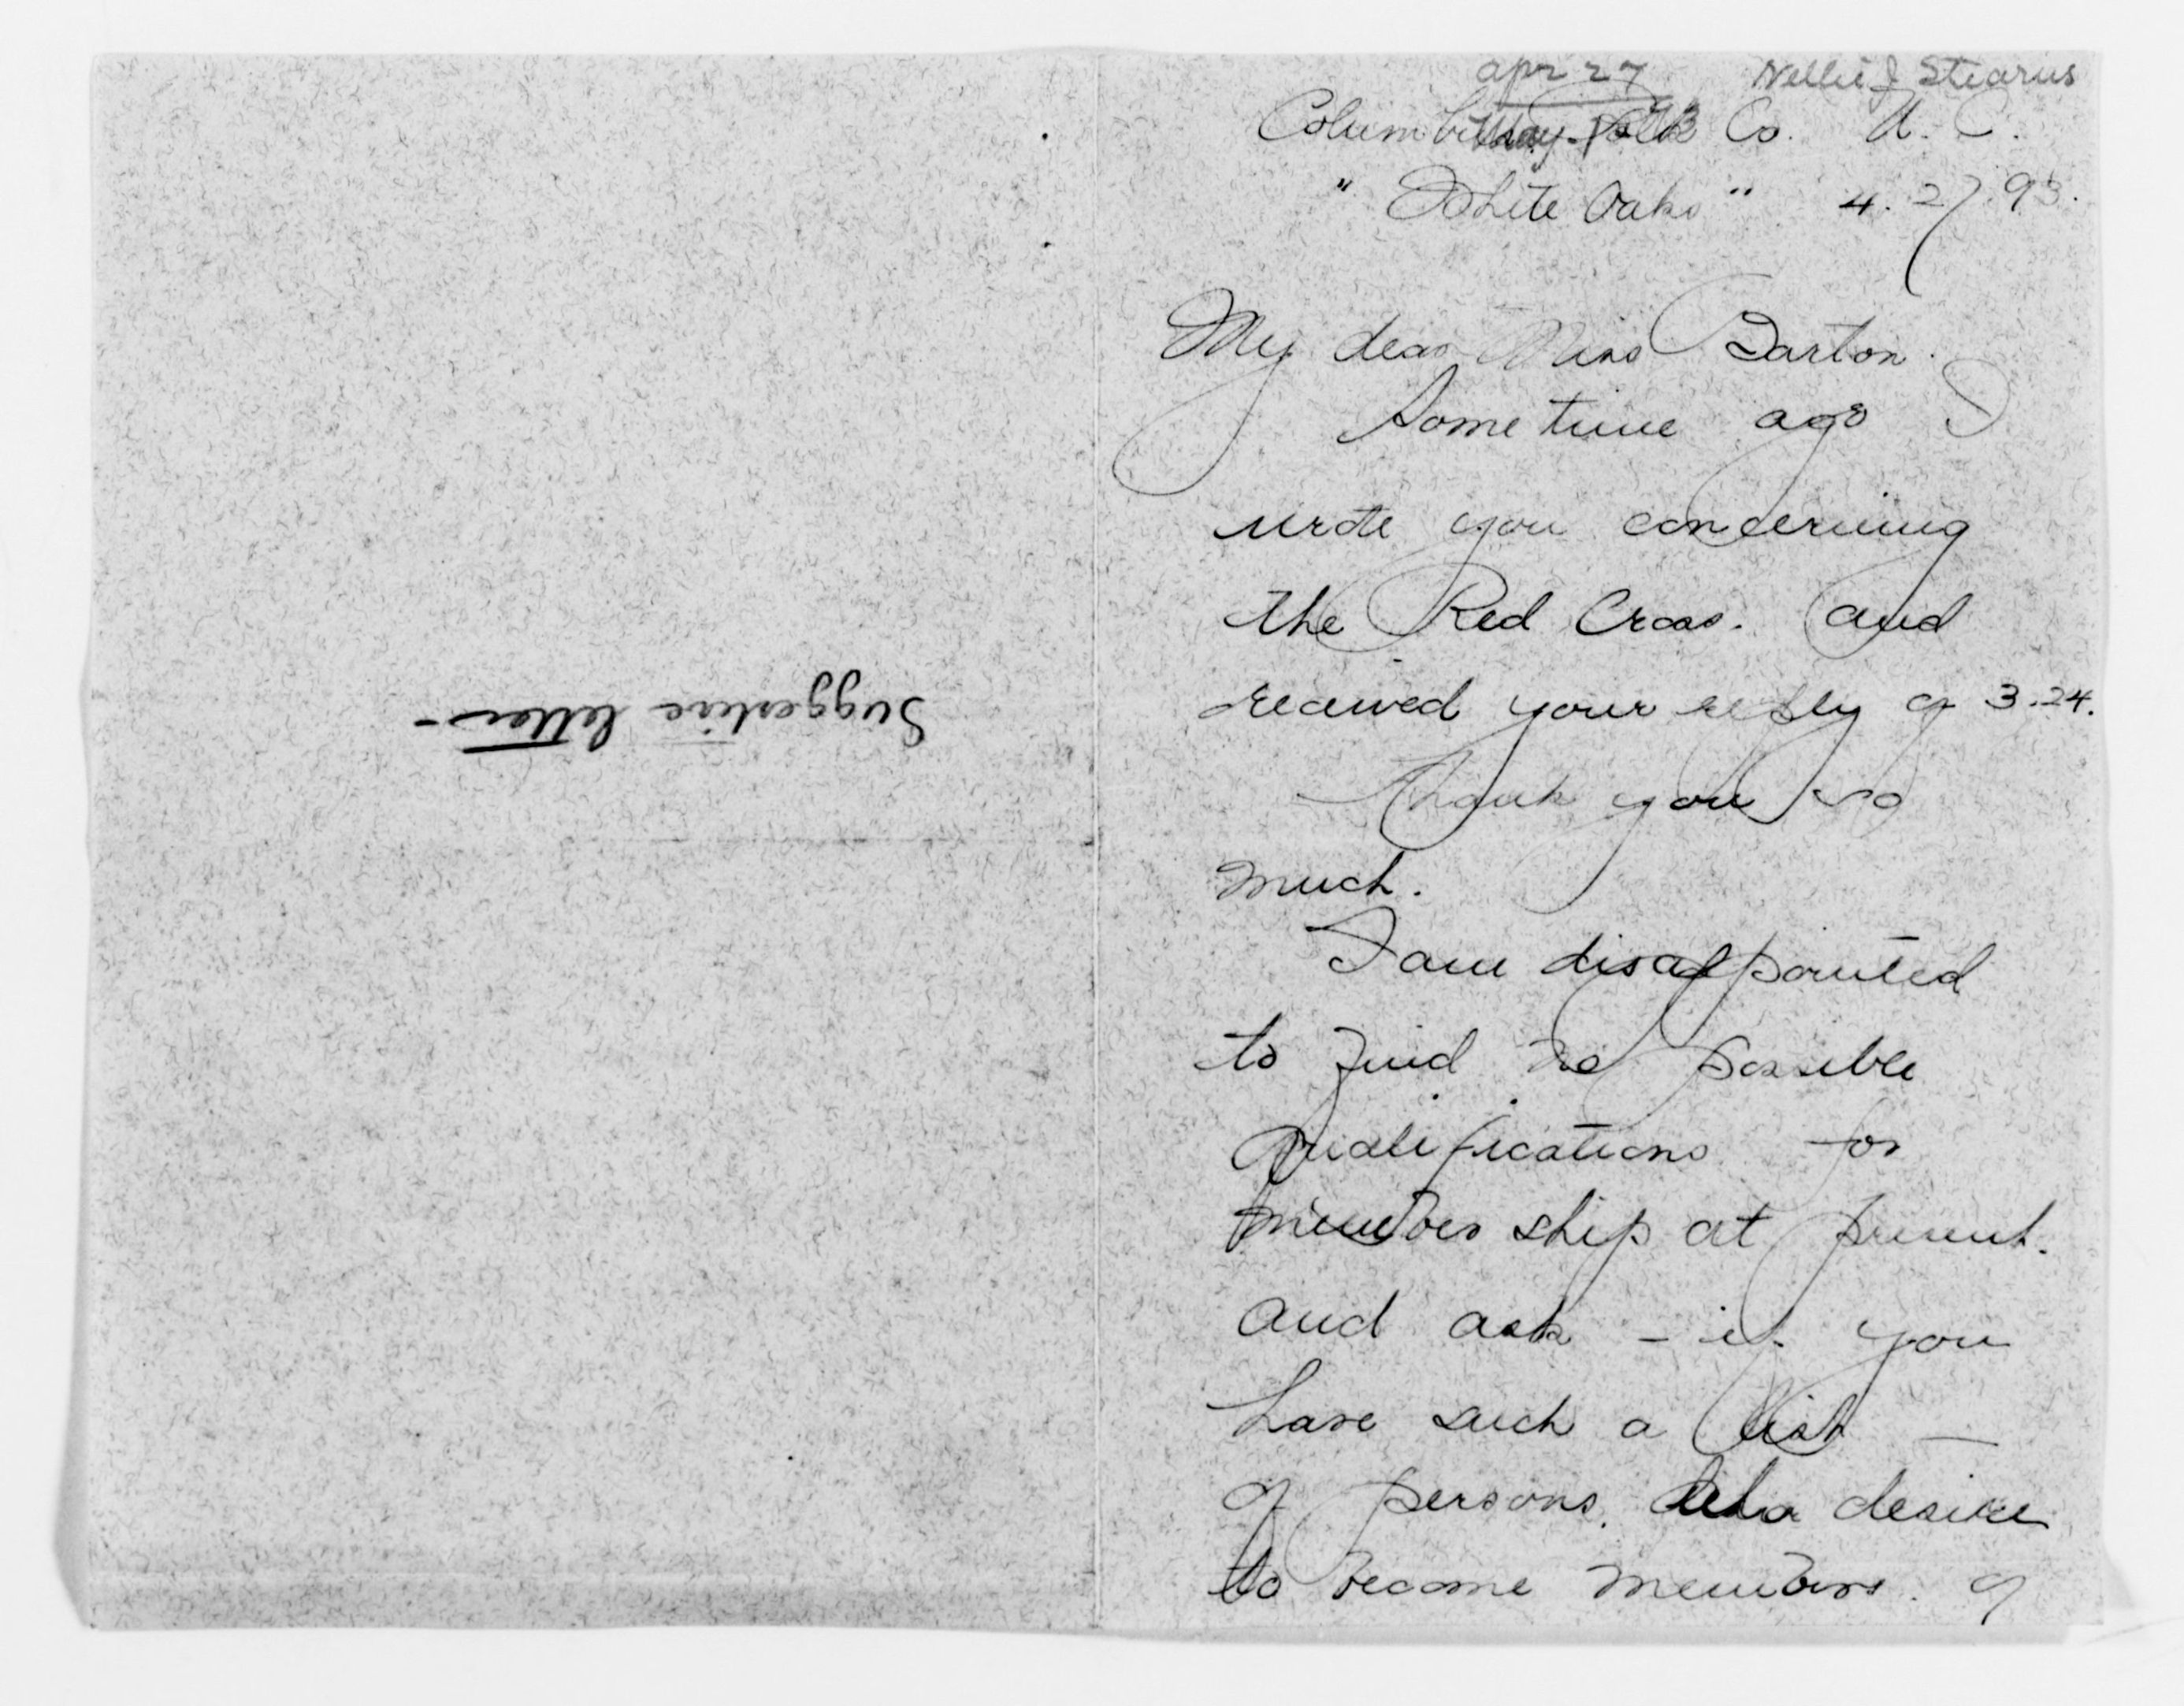 Suggestive letter-
apr 27 Nellie J Stearns
Columbus Polk Co. N. C.
" White Oaks " 4.27.93.
My dear Miss Barton.
Some time ago I
wrote you concerning
the Red Cross. and
received your reply of 3.24.
Thank you so
much.
I am disappointed
to find no possible
qualifications for
member ship at present.
and ask - if you
have such a list —
of persons. who desire
to become members. of